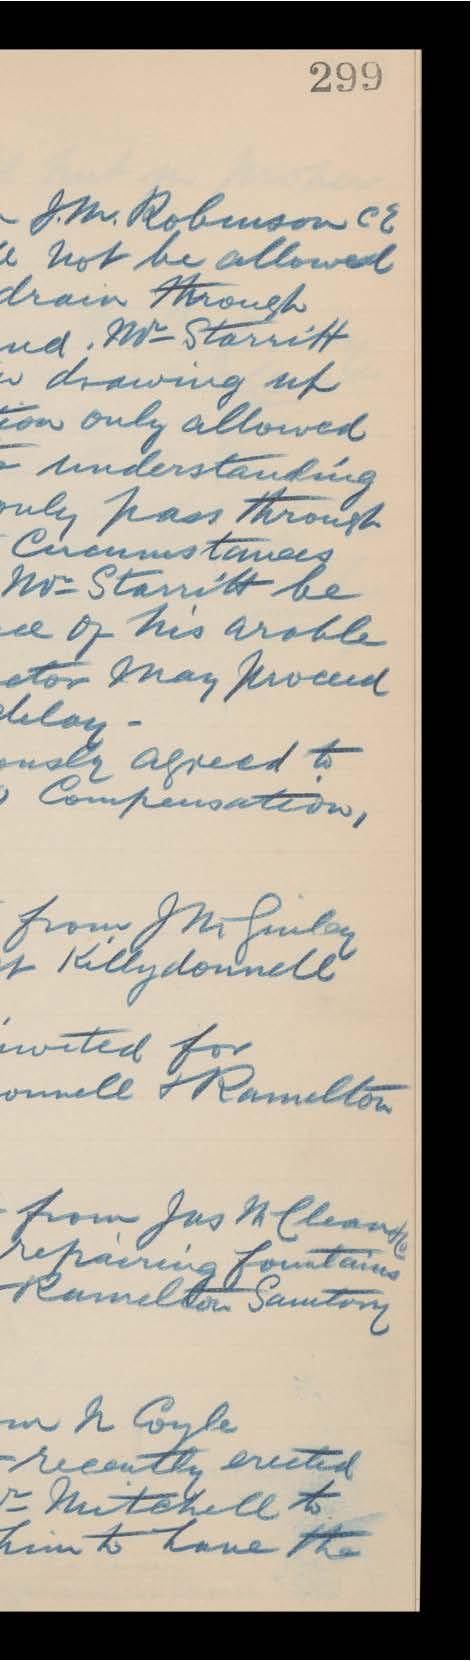 299
J. M. Robinson CE
not be allowed
drain through
Mr Starritt
drawing up
tion only allowed
understanding
only pass through
Circumstances
Mr Starritt be
of his arable
may proceed
delay -
ously agreed to
Compensation,
from J McGinley
Killydonnell
invited for
onnell & Ramelton
from Jas McClean
repairing fountains
Ramelton Sanitory
N Coyle
recently erected
Mitchell to
him to have the